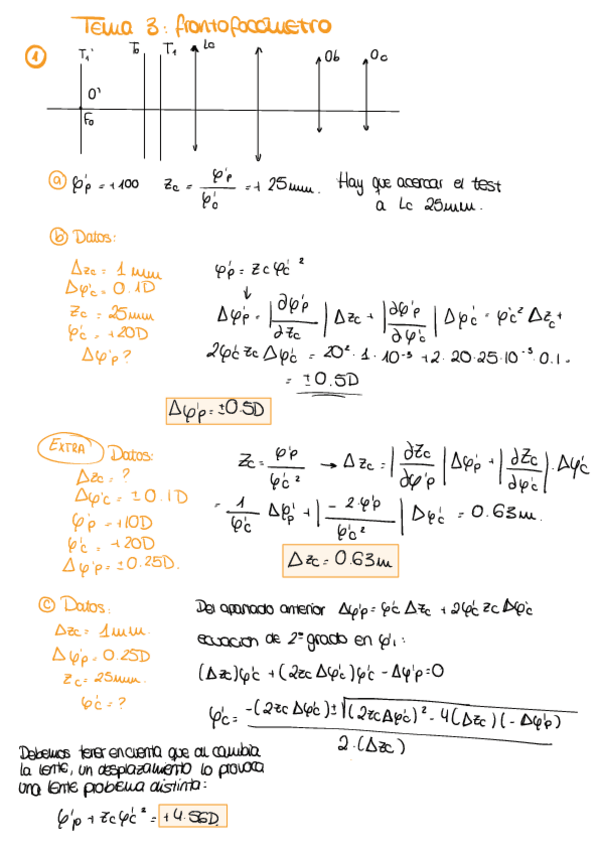 Tema 3: frontofocómetro
① T₁' T₀ T₁ Lc Ob Oc
O'
F₀
ⓐ φ'p = +100 zc = φ'p / φ'c = + 25mm. Hay que acercar el test
a Lc 25mm.
ⓑ Datos:
Δzc = 1 mm
Δφ'c = 0.1D
zc = 25mm
φ'c = +20D
Δφ'p?
φ'p = zc φ'c ²
↓
Δφ'p = |∂φ'p / ∂zc| Δzc + |∂φ'p / ∂φ'c| Δφ'c = φ'c² Δzc +
2φ'c zc Δφ'c = 20² · 1 · 10⁻³ + 2 · 20 · 25 · 10⁻³ · 0.1 =
= ±0.5D
Δφ'p = ±0.5D
EXTRA Datos:
Δzc = ?
Δφ'c = ± 0.1D
φ'p = +10D
φ'c = +20D
Δφ'p = ±0.25D.
zc = φ'p / φ'c ² → Δzc = |∂zc / ∂φ'p| Δφ'p + |∂zc / ∂φ'c| · Δφ'c
= 1 / φ'c Δφ'p + |-2·φ'p / φ'c²| Δφ'c = 0.63m.
Δzc = 0.63m
ⓒ Datos:
Δzc = 1mm.
Δφ'p = 0.25D
zc = 25mm.
φ'c = ?
Del apartado anterior Δφ'p = φ'c Δzc + 2φ'c zc Δφ'c
ecuación de 2º grado en φ'₁:
(Δzc)φ'c + (2zc Δφ'c)φ'c - Δφ'p = 0
φ'c = -(2zc Δφ'c) ± √(2zc Δφ'c)² - 4(Δzc)(-Δφ'p) / 2·(Δzc)
Debemos tener en cuenta que al cambia
la lente, un desplazamiento lo provoca
una lente problema distinta:
φ'p + zc φ'c ² = +4.56D.